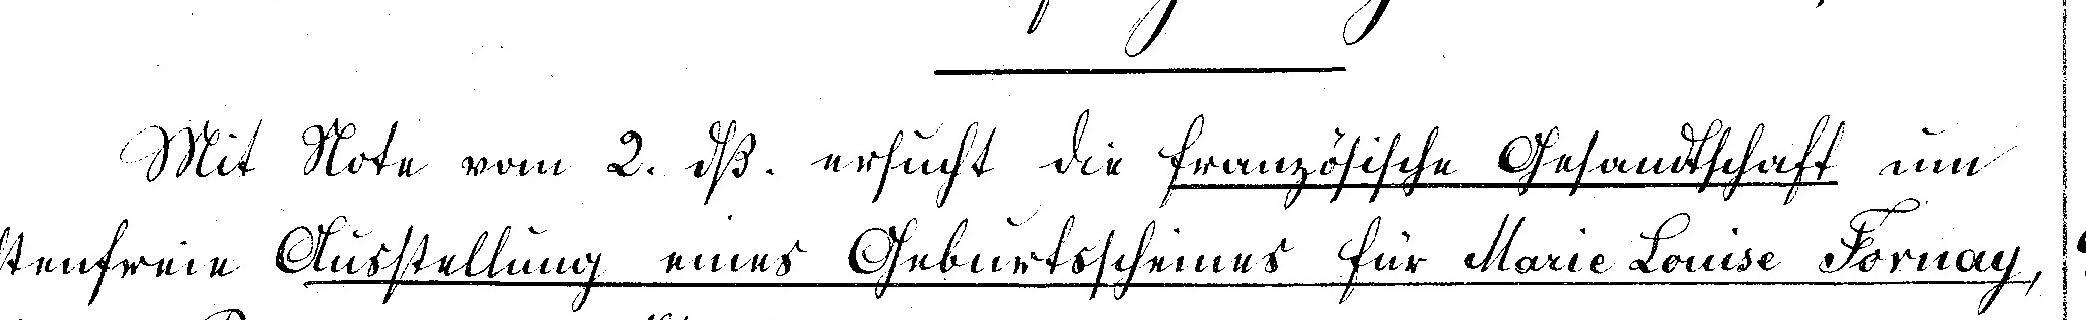 Mit Note vom 2. dß. ersucht die französische Gesandtschaft um
stenfreie Ausstellung eines Geburtsscheines für Marie Louise Fornay,